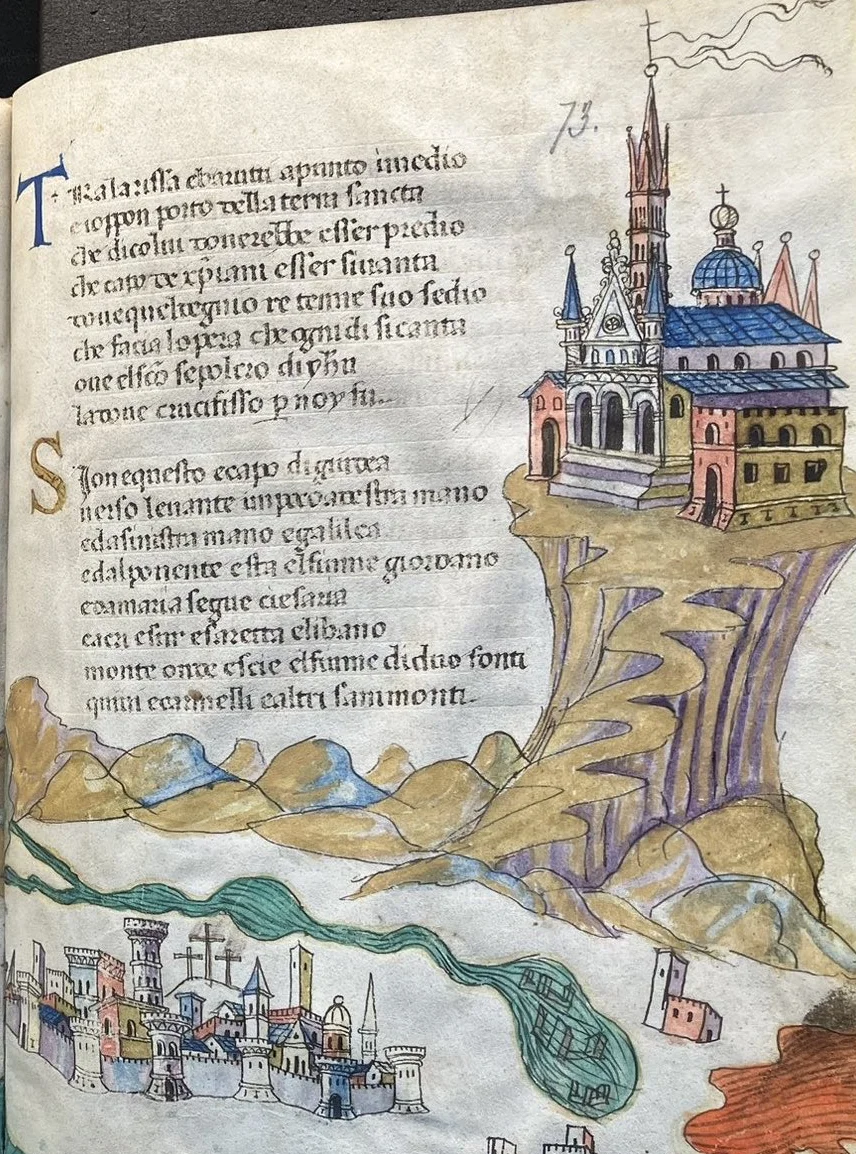 73.
TRa larissa e baruti apunto imedio
e ioppon porto della terra sancta
che dicolui doverebbe esser predio
che capo de xp̄iani esser si vanta
doue quel regnio re tenne suo sedio
che facia lopera che ogni di si canta
oue el sc̄o sepolcro di yh̄u
la doue crucifisso ꝑ noy fu.
Sion e questo e capo di giudea
uerso leuante un pò a destra mano
e da sinistra mano e galilea
e dal ponente esta el fiume giordano
e samaria segue ciesaria
esaretta e libano
monte onde escie el fiume di duo fonti
quiui e carmelli e altri san monti.